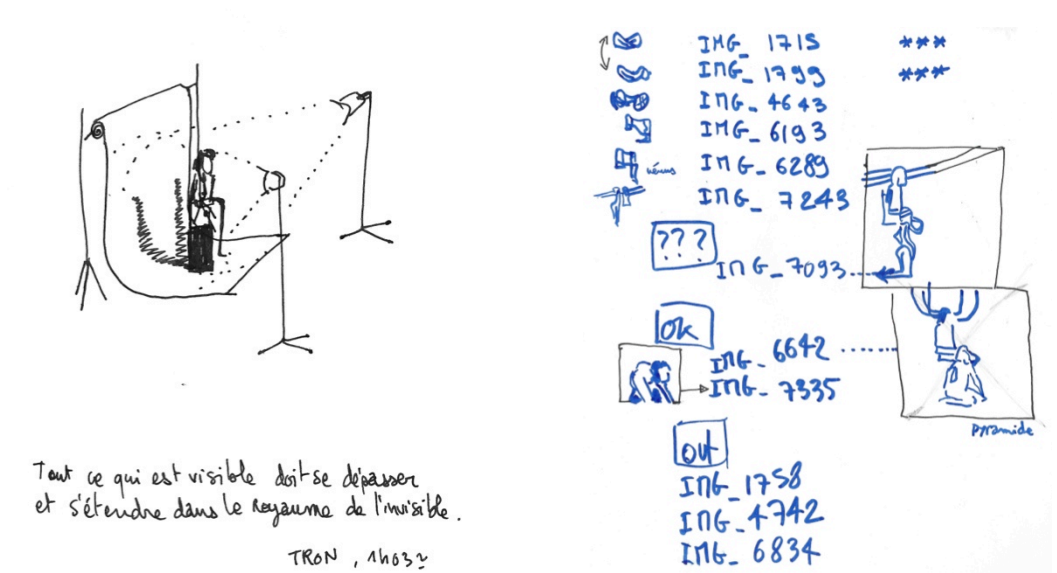 Tout ce qui est visible doit se dépasser
et s'étendre dans le Royaume de l'invisible.
TRON, 1h032
IMG_ 1715 ***
IMG_ 1799 ***
IMG_ 4643
IMG_ 6193
vénus IMG_ 6289
IMG_ 7243
???
IMG_7093
ok
IMG_ 6642
IMG_ 7335
pyramide
out
IMG_1758
IMG_4742
IMG_ 6834